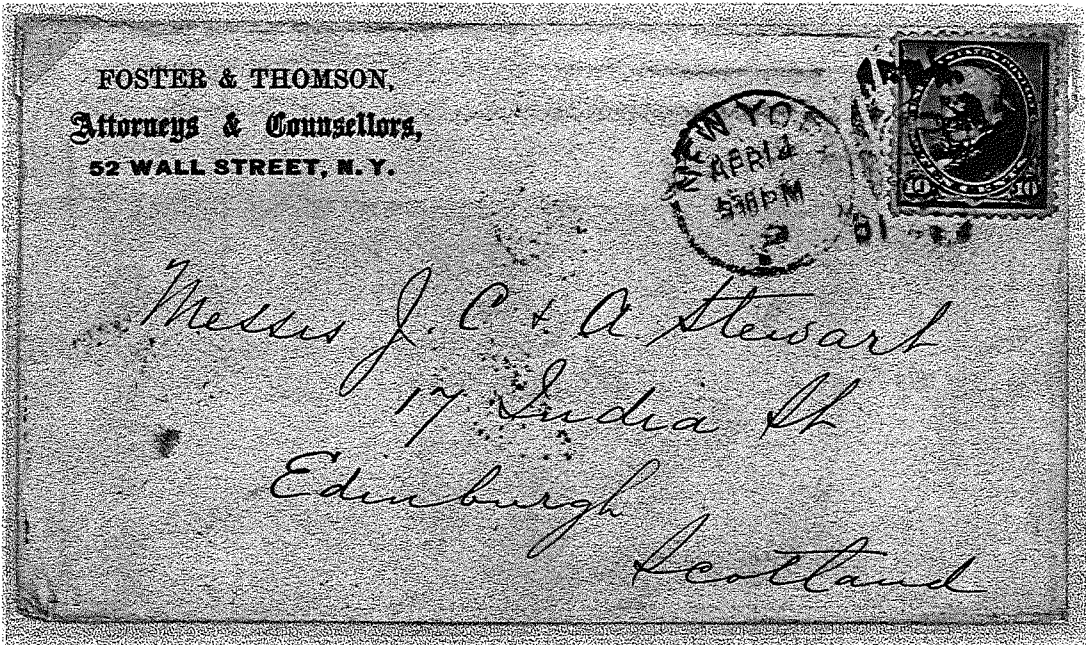 FOSTER & THOMSON,
Attorneys & Counsellors,
52 WALL STREET, N. Y.
NEW YORK
APR 14
530 PM
10 10
Messrs J. C & A Stewart
17 India St
Edinburgh
Scotland